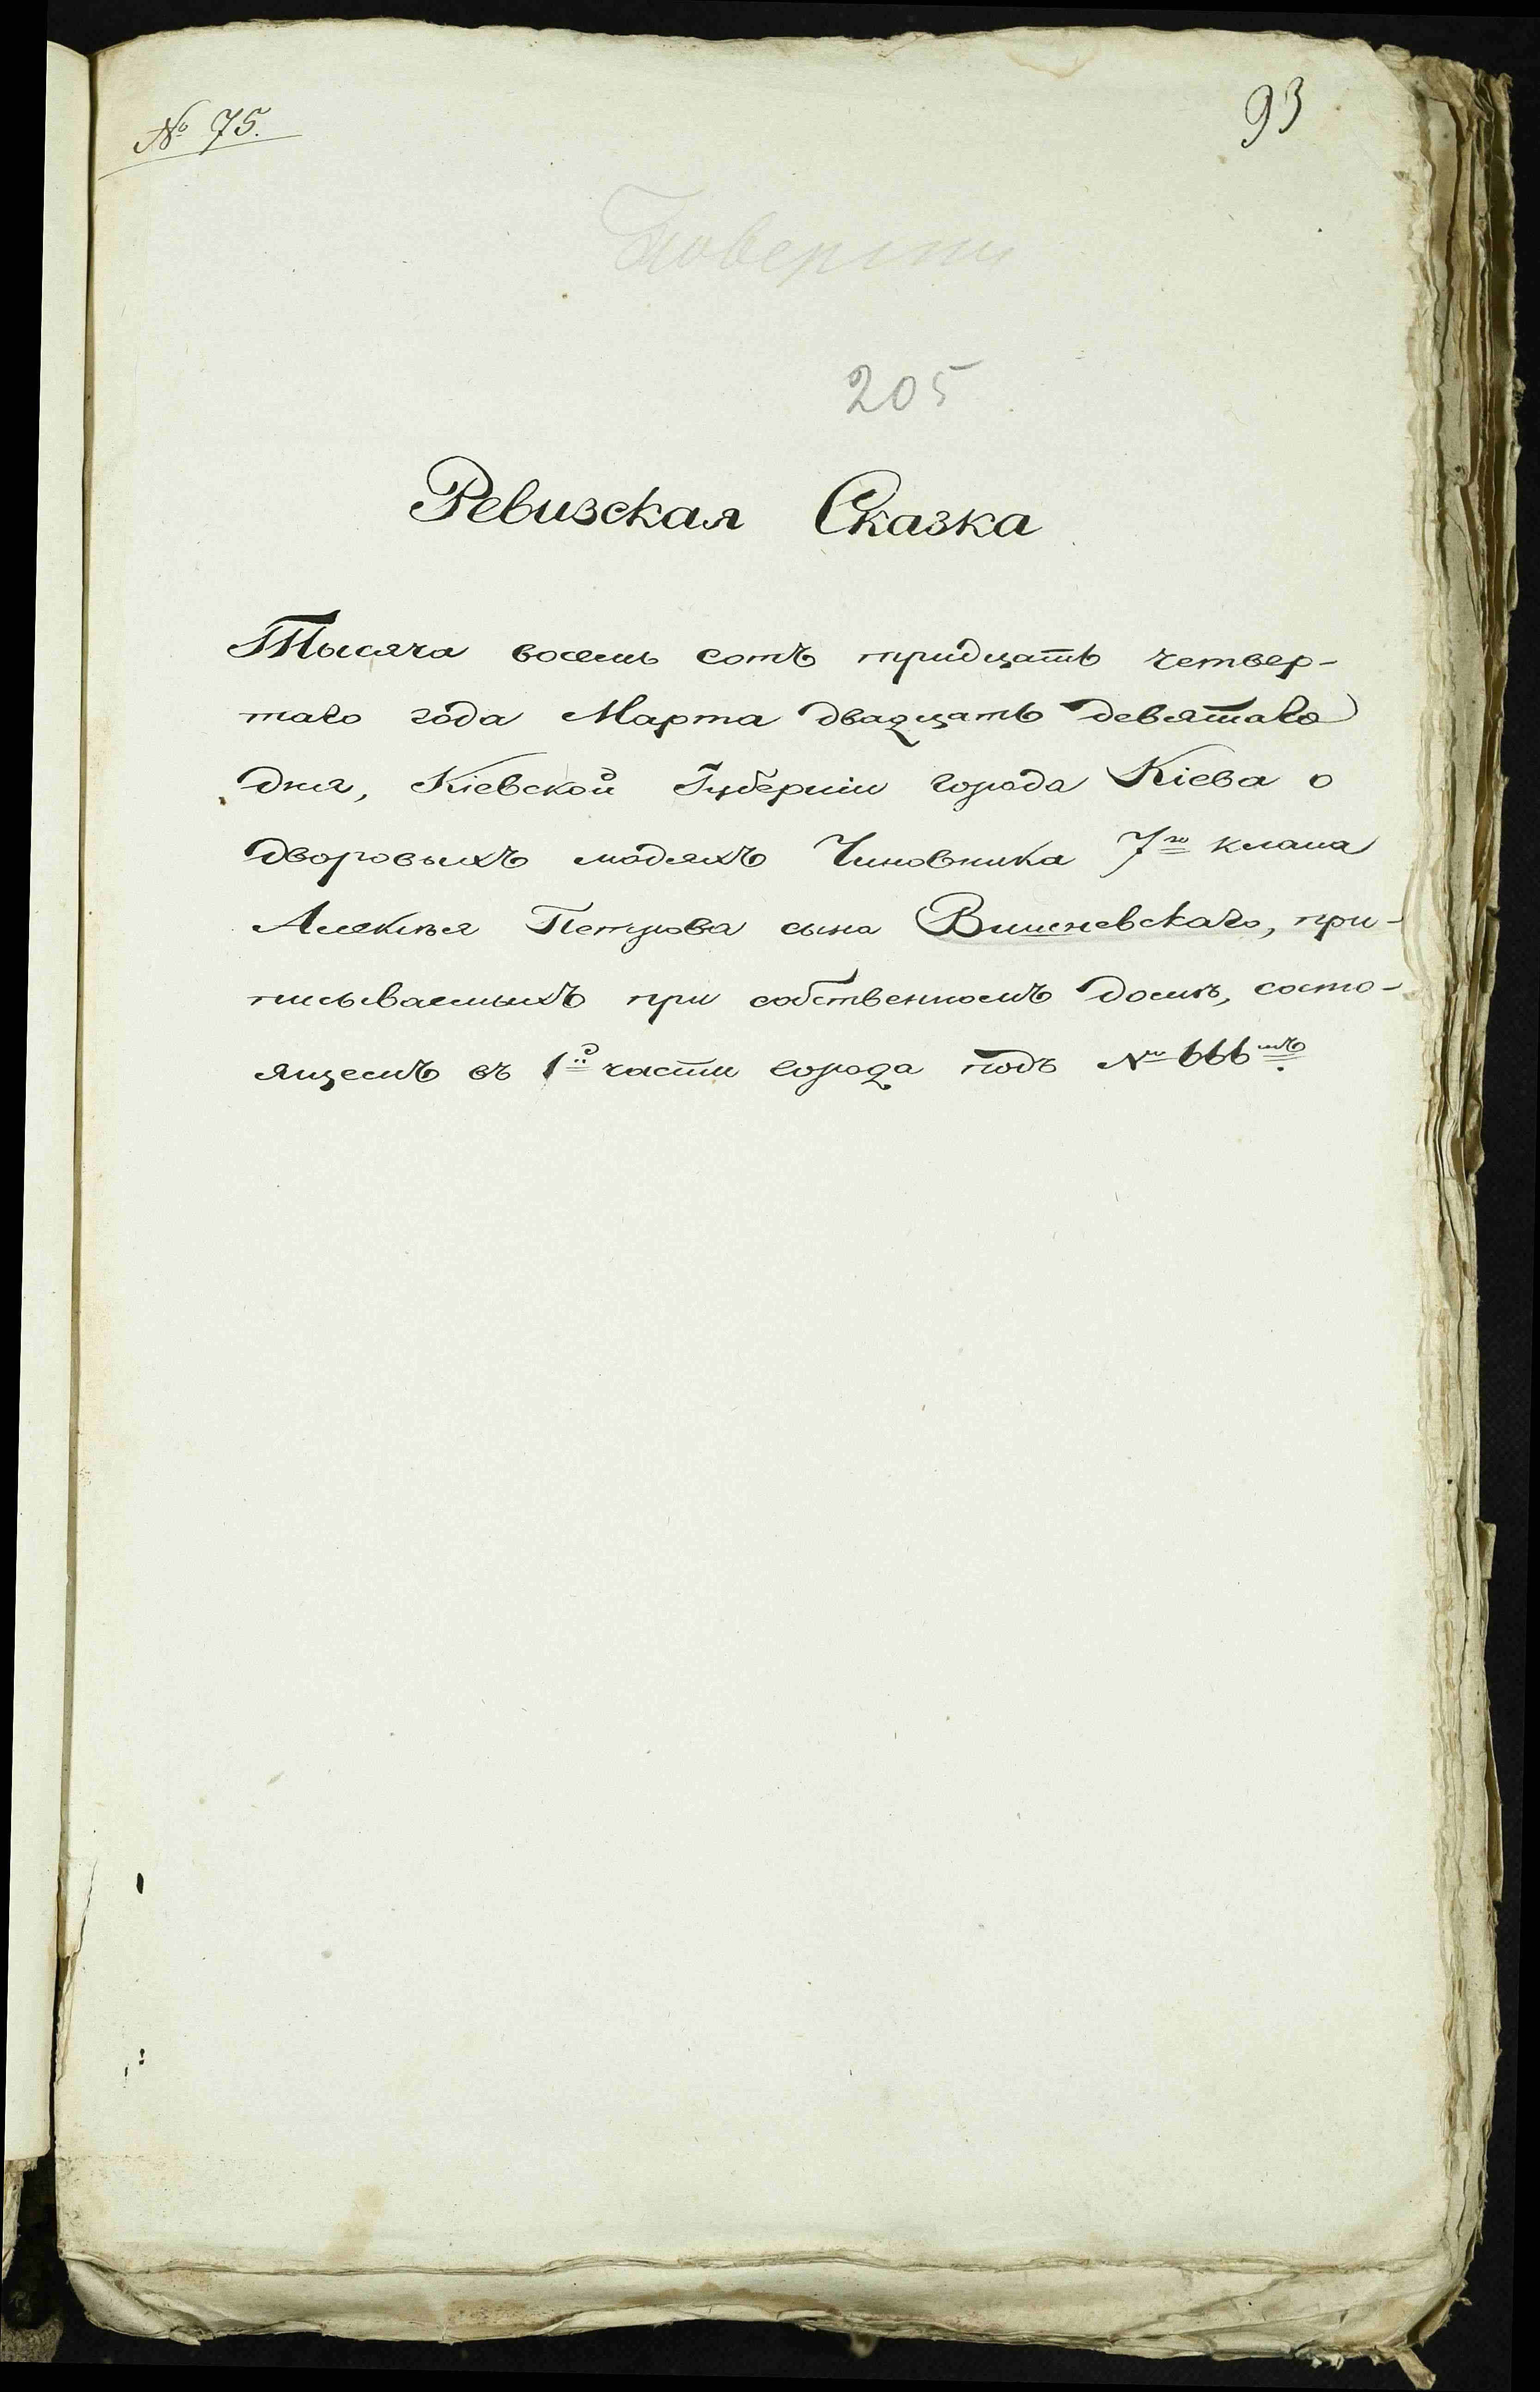 № 75.
93
205
Ревизская Сказка
Тысяча восемь сотъ тридцать четвер-
таго года Марта двадцать девятаго
дня, Кіевской Губерніи города Кіева о
дворовыхъ людяхъ Чиновника 7го класса
Алексѣя Петрова сына Вишневскаго, при-
писываемыхъ при собственномъ домѣ, состо-
ящемъ въ 1й части города подъ № 666мъ.